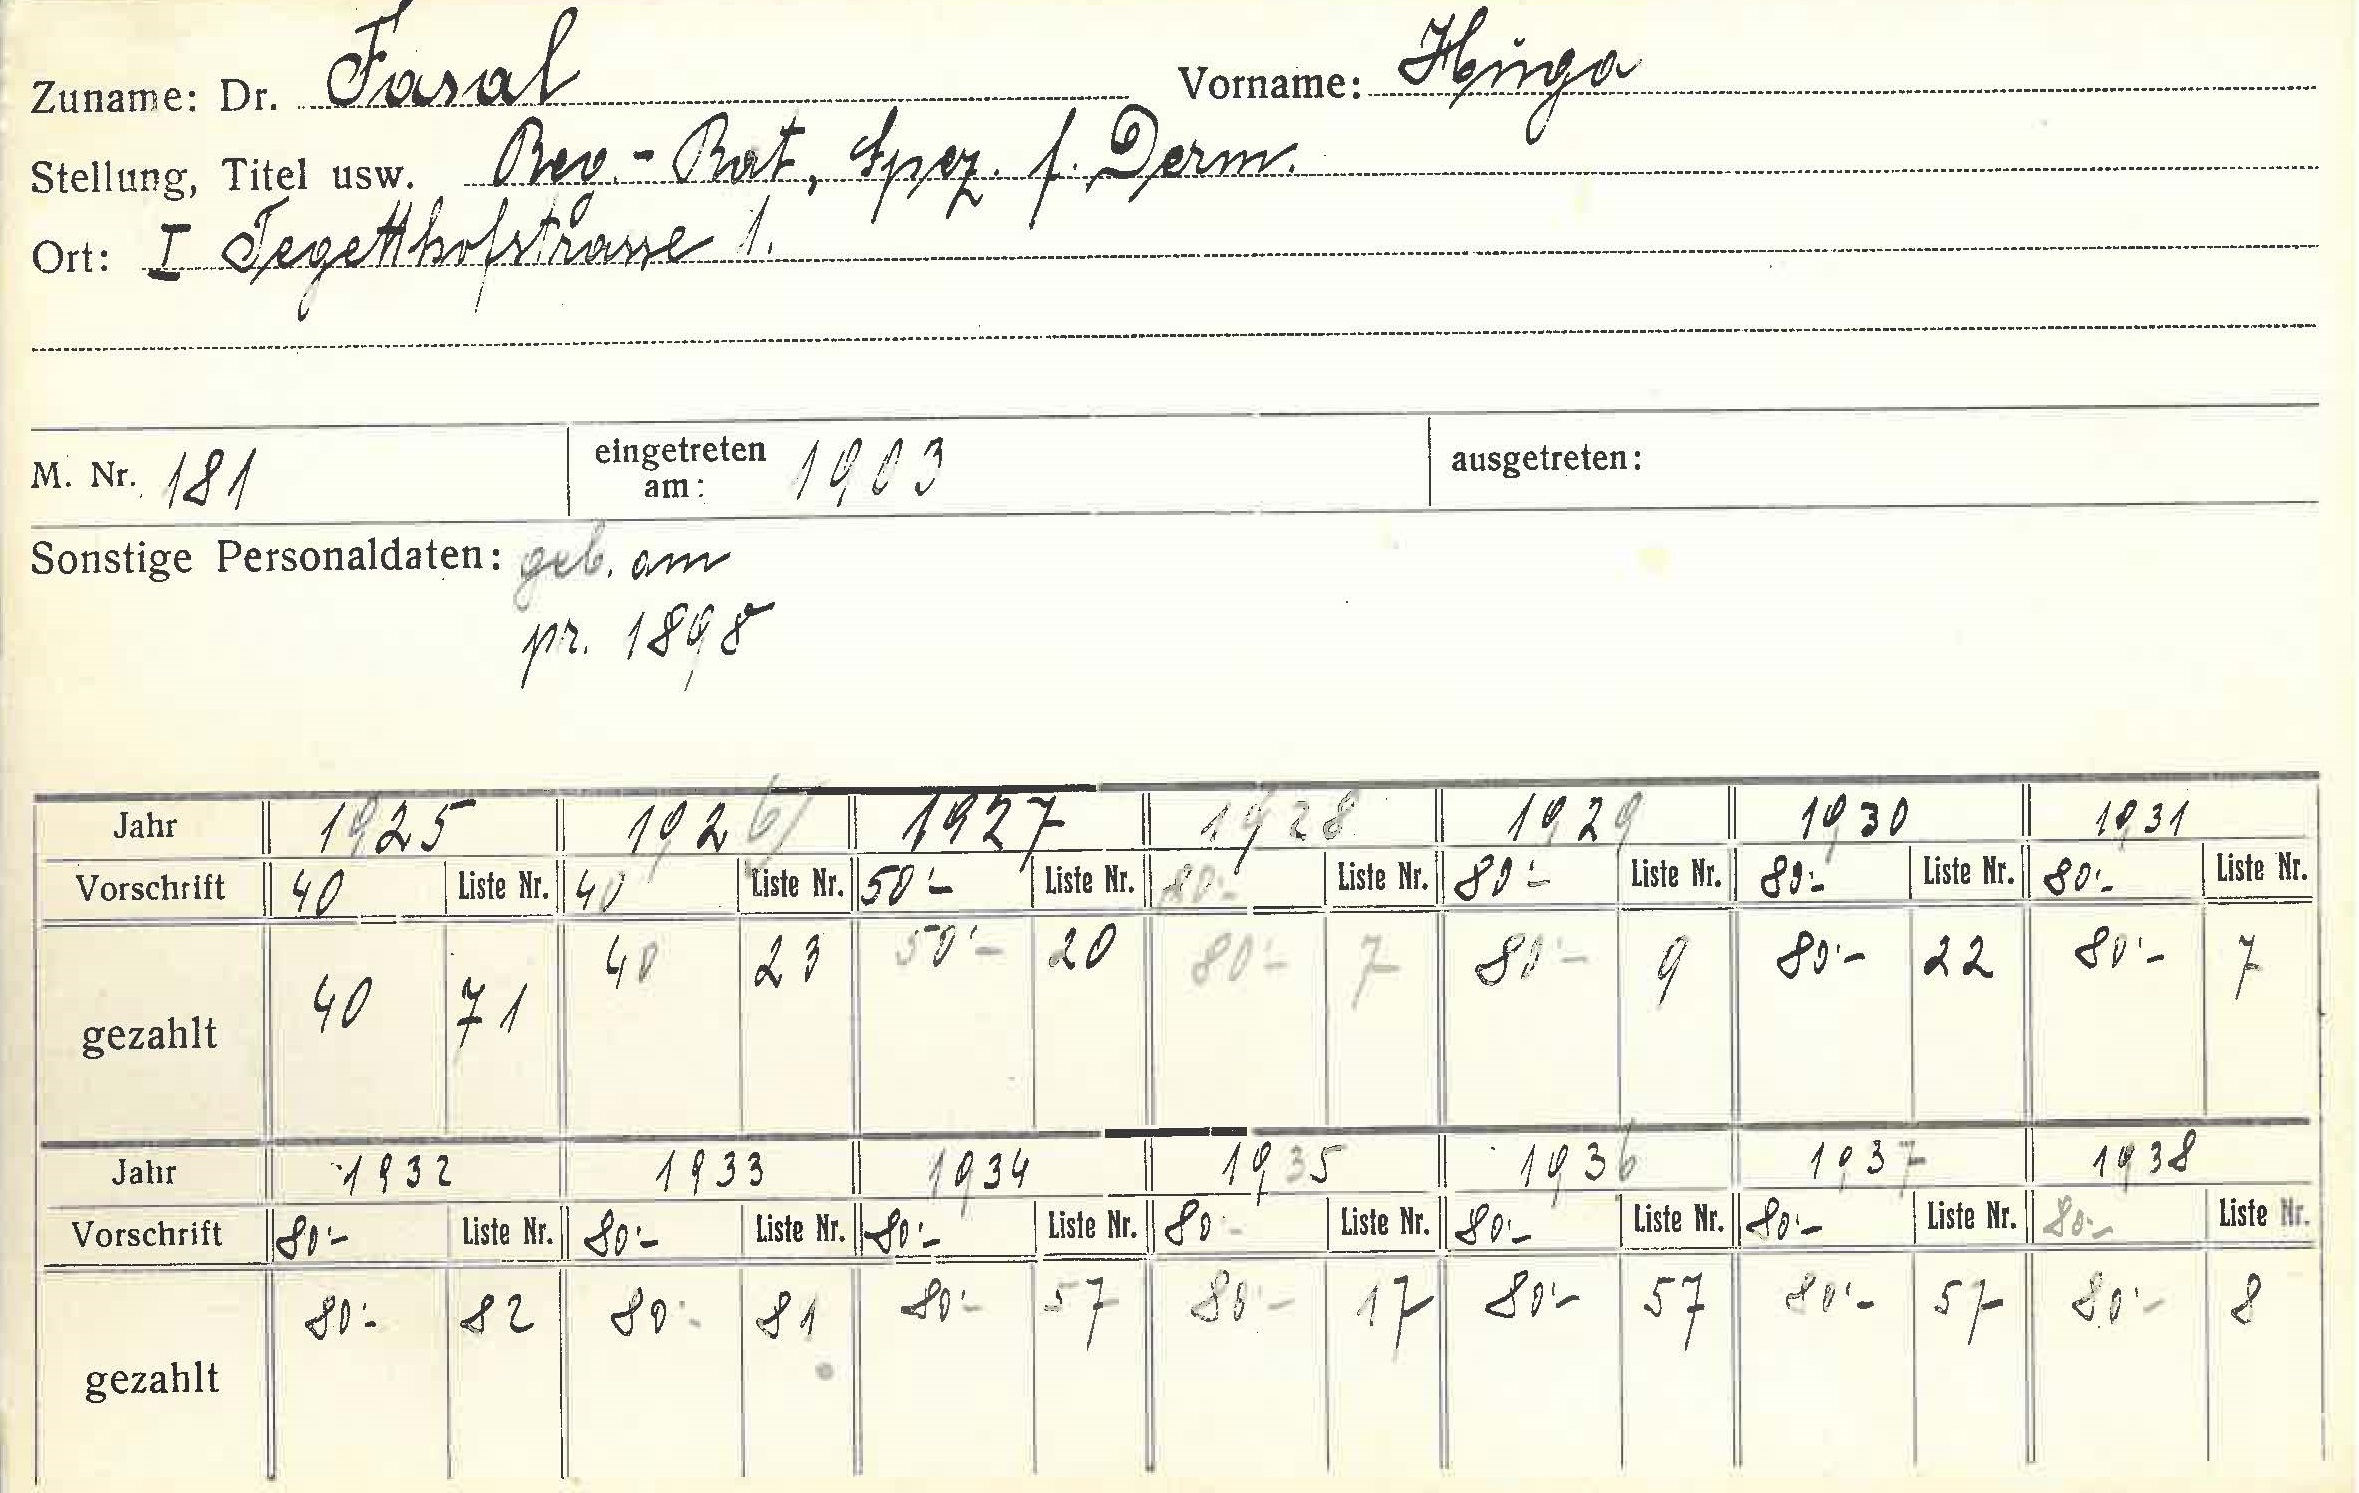 Zuname: Dr. Fasal Vorname: Hugo
Stellung, Titel usw. Reg.-Rat, Spez. f. Derm.
Ort: I Tegetthofstrasse 1.
M. Nr. 181 eingetreten am: 1903 ausgetreten:
Sonstige Personaldaten: geb. am
pr. 1898
Jahr 1925 1926 1927 1928 1929 1930 1931
Vorschrift 40 Liste Nr. 40 Liste Nr. 50'- Liste Nr. 80'- Liste Nr. 80'- Liste Nr. 80'- Liste Nr. 80'- Liste Nr.
gezahlt 40 71 40 23 50'- 20 80'- 7 80'- 9 80'- 22 80'- 7
Jahr 1932 1933 1934 1935 1936 1937 1938
Vorschrift 80'- Liste Nr. 80'- Liste Nr. 80'- Liste Nr. 80- Liste Nr. 80'- Liste Nr. 80'- Liste Nr. 80'- Liste Nr.
gezahlt 80'- 82 80'- 81 80'- 57 80'- 17 80'- 57 80'- 57 80'- 8